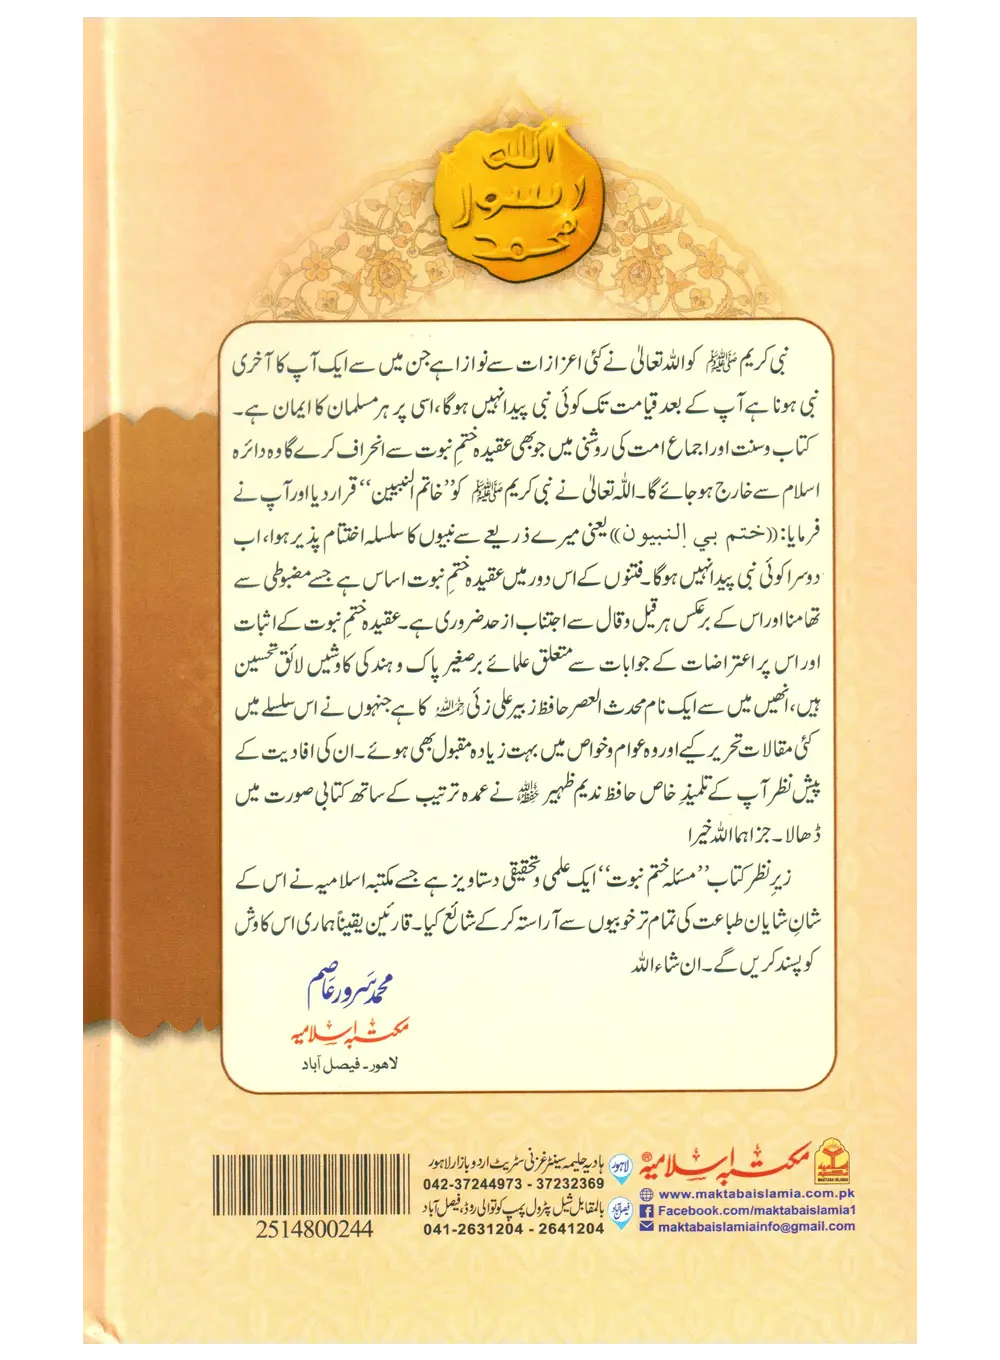 الله
رسول
محمد
نبی کریم ﷺ کو اللہ تعالیٰ نے کئی اعزازات سے نوازا ہے جن میں سے ایک آپ کا آخری
نبی ہونا ہے آپ کے بعد قیامت تک کوئی نبی پیدا نہیں ہوگا، اسی پر ہر مسلمان کا ایمان ہے۔
کتاب وسنت اور اجماع امت کی روشنی میں جو بھی عقیدہ ختمِ نبوت سے انحراف کرے گا وہ دائرہ
اسلام سے خارج ہو جائے گا۔ اللہ تعالیٰ نے نبی کریم ﷺ کو ”خاتم النبیین“ قرار دیا اور آپ نے
فرمایا: ((ختم بي النبيون)) یعنی میرے ذریعے سے نبیوں کا سلسلہ اختتام پذیر ہوا، اب
دوسرا کوئی نبی پیدا نہیں ہوگا۔ فتنوں کے اس دور میں عقیدہ ختمِ نبوت اساس ہے جسے مضبوطی سے
تھامنا اور اس کے برعکس ہر قیل وقال سے اجتناب از حد ضروری ہے۔ عقیدہ ختمِ نبوت کے اثبات
اور اس پر اعتراضات کے جوابات سے متعلق علمائے برصغیر پاک وہند کی کاوشیں لائق تحسین
ہیں، انھیں میں سے ایک نام محدث العصر حافظ زبیر علی زئی رحمہ اللہ کا ہے جنہوں نے اس سلسلے میں
کئی مقالات تحریر کیے اور وہ عوام وخواص میں بہت زیادہ مقبول بھی ہوئے۔ ان کی افادیت کے
پیش نظر آپ کے تلمیذِ خاص حافظ ندیم ظہیر حفظہ اللہ نے عمدہ ترتیب کے ساتھ کتابی صورت میں
ڈھالا۔ جزاھما اللہ خیرا
زیرِ نظر کتاب ”مسئلہ ختم نبوت“ ایک علمی وتحقیقی دستاویز ہے جسے مکتبہ اسلامیہ نے اس کے
شانِ شایان طباعت کی تمام تر خوبیوں سے آراستہ کر کے شائع کیا۔ قارئین یقیناً ہماری اس کاوش
کو پسند کریں گے۔ ان شاء اللہ
محمد سرور عاصم
مکتبہ اسلامیہ
لاھور۔ فیصل آباد
مکتبہ اسلامیہ®
MAKTABA ISLAMIA
www.maktabaislamia.com.pk
Facebook.com/maktabaislamia1
maktabaislamiainfo@gmail.com
لاہور
ہادیہ حلیمہ سینٹر غزنی سٹریٹ اردو بازار لاہور
042-37244973 - 37232369
فیصل آباد
بالمقابل شیل پٹرول پمپ کوتوالی روڈ، فیصل آباد
041-2631204 - 2641204
2514800244